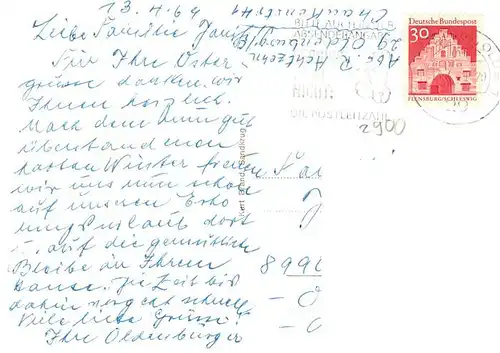 13.4.69
Liebe Familie
Für Ihre Oster-
grüsse danken wir
Ihnen herzlich.
Nach dem nun gut
überstandenen
harten Winter freuen
wir uns nun schon
auf unseren Erho
lungsurlaub dort
u. auf die gemütliche
Bleibe in Ihrem
Hause. Die Zeit bis
dahin vergeht schnell
Viele liebe Grüsse!
Ihre Oldenburger
Abs. R.
29 Oldenburg
BITTE AUCH
ABSENDERANGABE
NICHT:
DIE POSTLEITZAHL
2900
Deutsche Bundespost
30
FLENSBURG/SCHLESWIG
Kurt Brand, Sandkrug
899